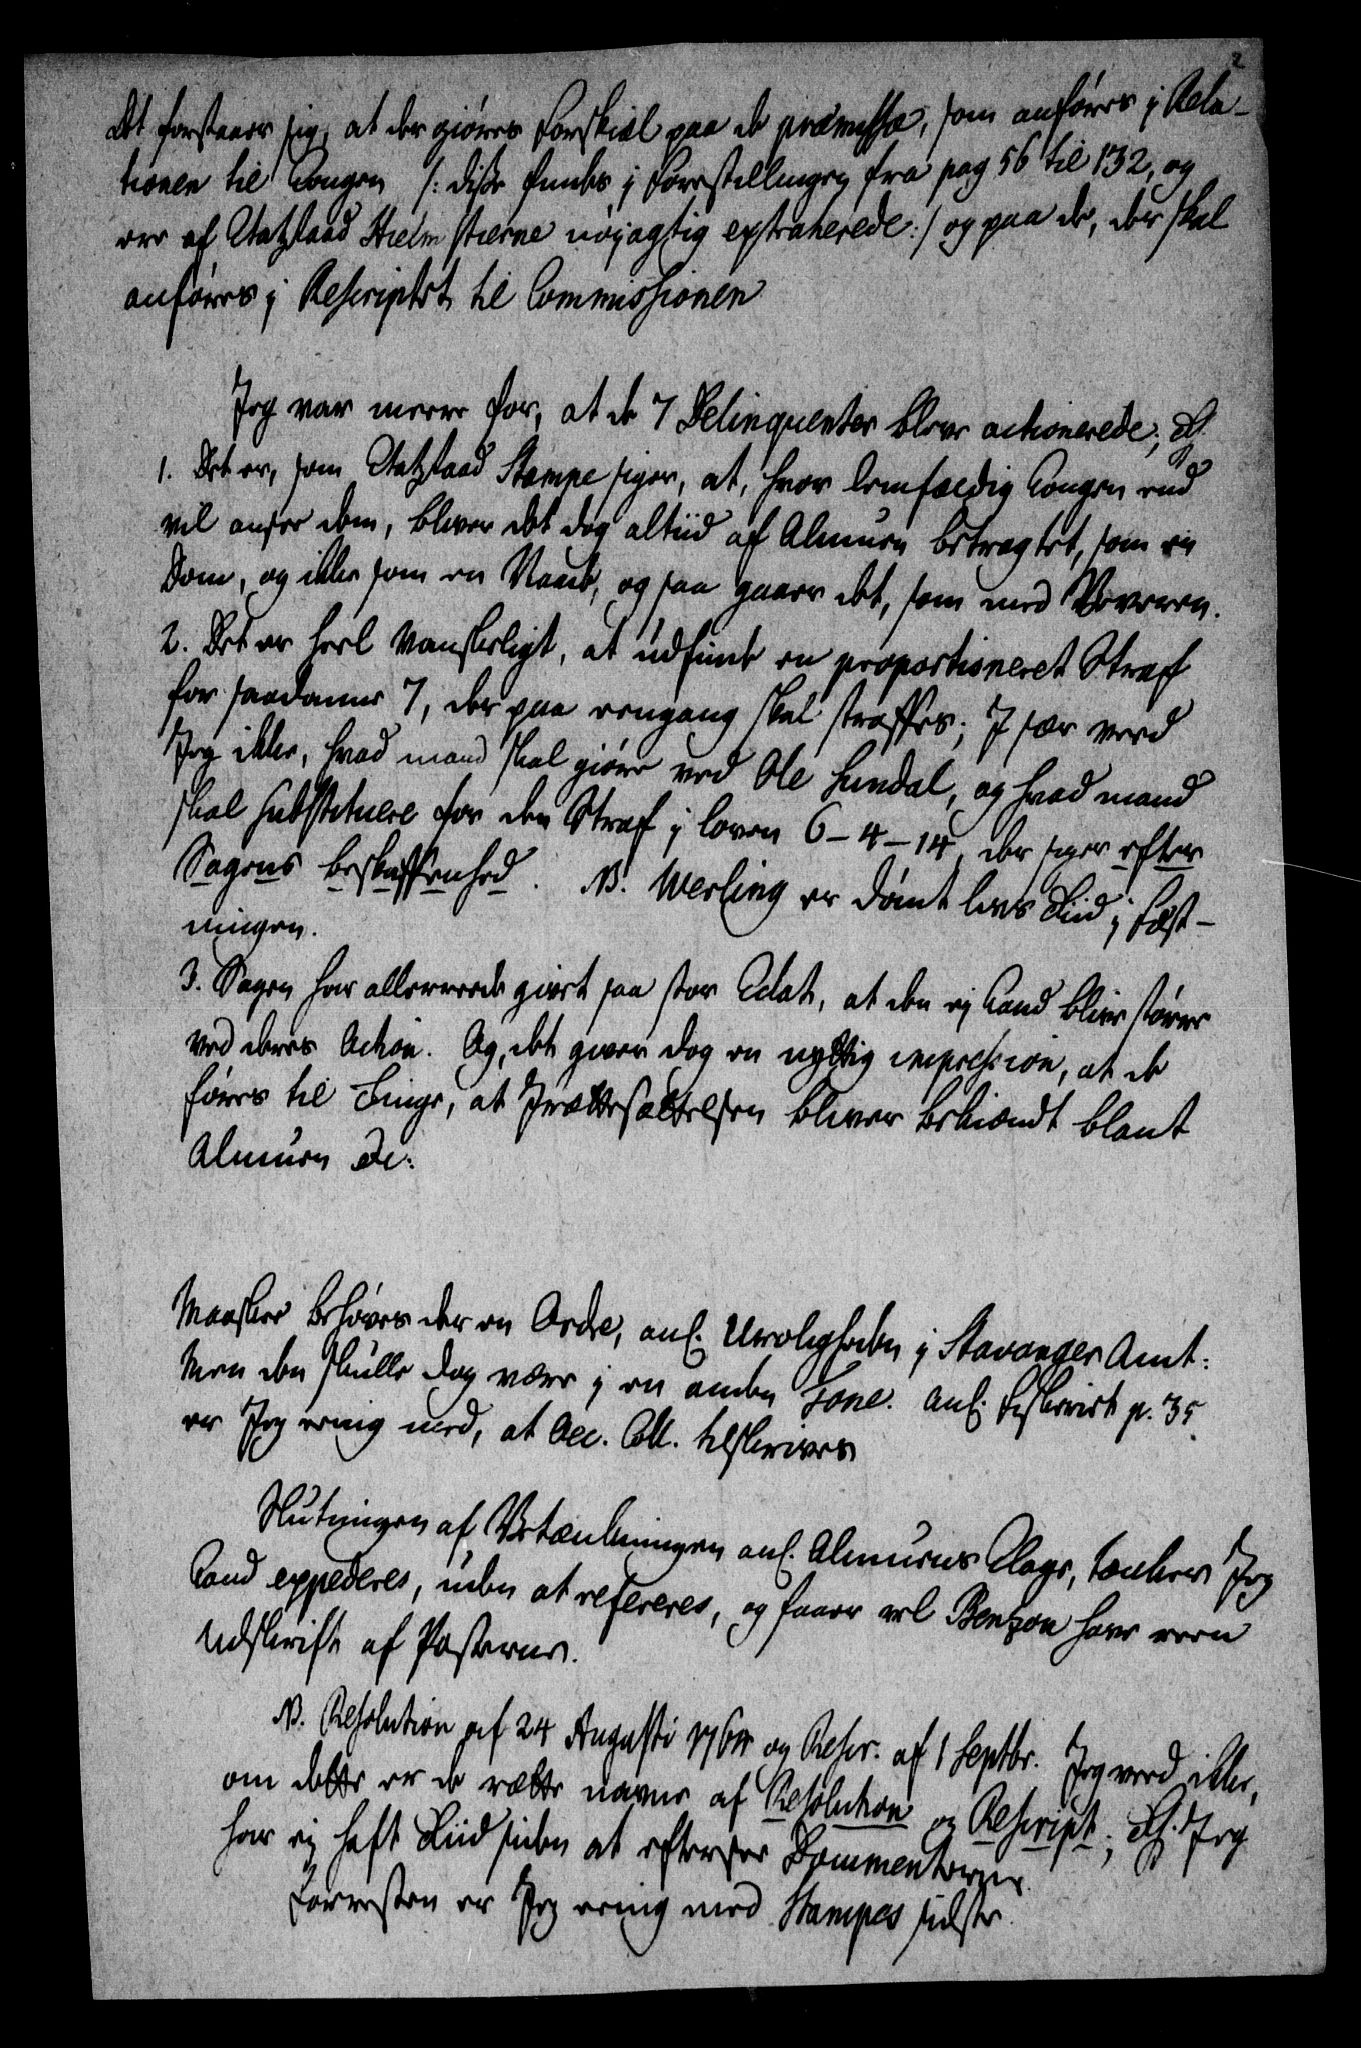 2
Det forstaaer sig, at der giøres Forskiæl paa de præmissa, som anføres i Rela-
tionen til Kongen /: disse findes i Forestillingen fra pag 56 til 132, og
ere af Etatzraad Hielmstierne nøyagtig extraherede :/ og paa de, der skal
anføres i Rescriptet til Commissionen
Jeg var meere for, at de 7 Delinquenter bleve actionerede; Th
1. Det er, som Etatzraad Stampe siger, at, hvor lemfældig Kongen end
vil ansee dem, bliver det dog altiid af Almuen betragtet, som en
Dom, og ikke som en Naade, og saa gaaer det, som med
2. Det er heel vanskeligt, at udfinde en proportioneret Straf
for saadanne 7, der paa eengang skal straffes; I sær veed
Jeg ikke, hvad mand skal giøre ved Ole Lundal, og hvad mand
skal substituere for den Straf i Loven 6-4-14, der siger efter
Sagens beskaffenhed. NB. Werling er dømt livs Tiid i Fæst-
ningen.
3. Sagen har allerreede giort saa stor Eclat, at den ej kand blive større
ved deres Action. Og, det giver dog en nyttig impression, at de
føres til Tinge, at Irættesættelsen bliver bekiændt blant
Almuen &c:
Maaskee behøves der en Ordre, anl. Uroligheden i Stavanger Amt:
Men den skulle dog være i en anden Tone. Anl. Fiskeriet p. 35
er Jeg eenig med, at Gen. Toll. tilskrives
Slutningen af Betænkningen anl. Almuens Klage, tænker Jeg
kand expederes, uden at refereres, og faaer vel Benzon have reen
Udskrift af Posterne.
NB. Resolution af 24 Augusti og Rescr. af 1 Septbr. Jeg veed ikke,
om dette er de rætte navne af Resolution og Rescript; Th. Jeg
har ej haft Tiid siden at efterse Documenterne.
Forresten er Jeg eenig med Stampes sidste.